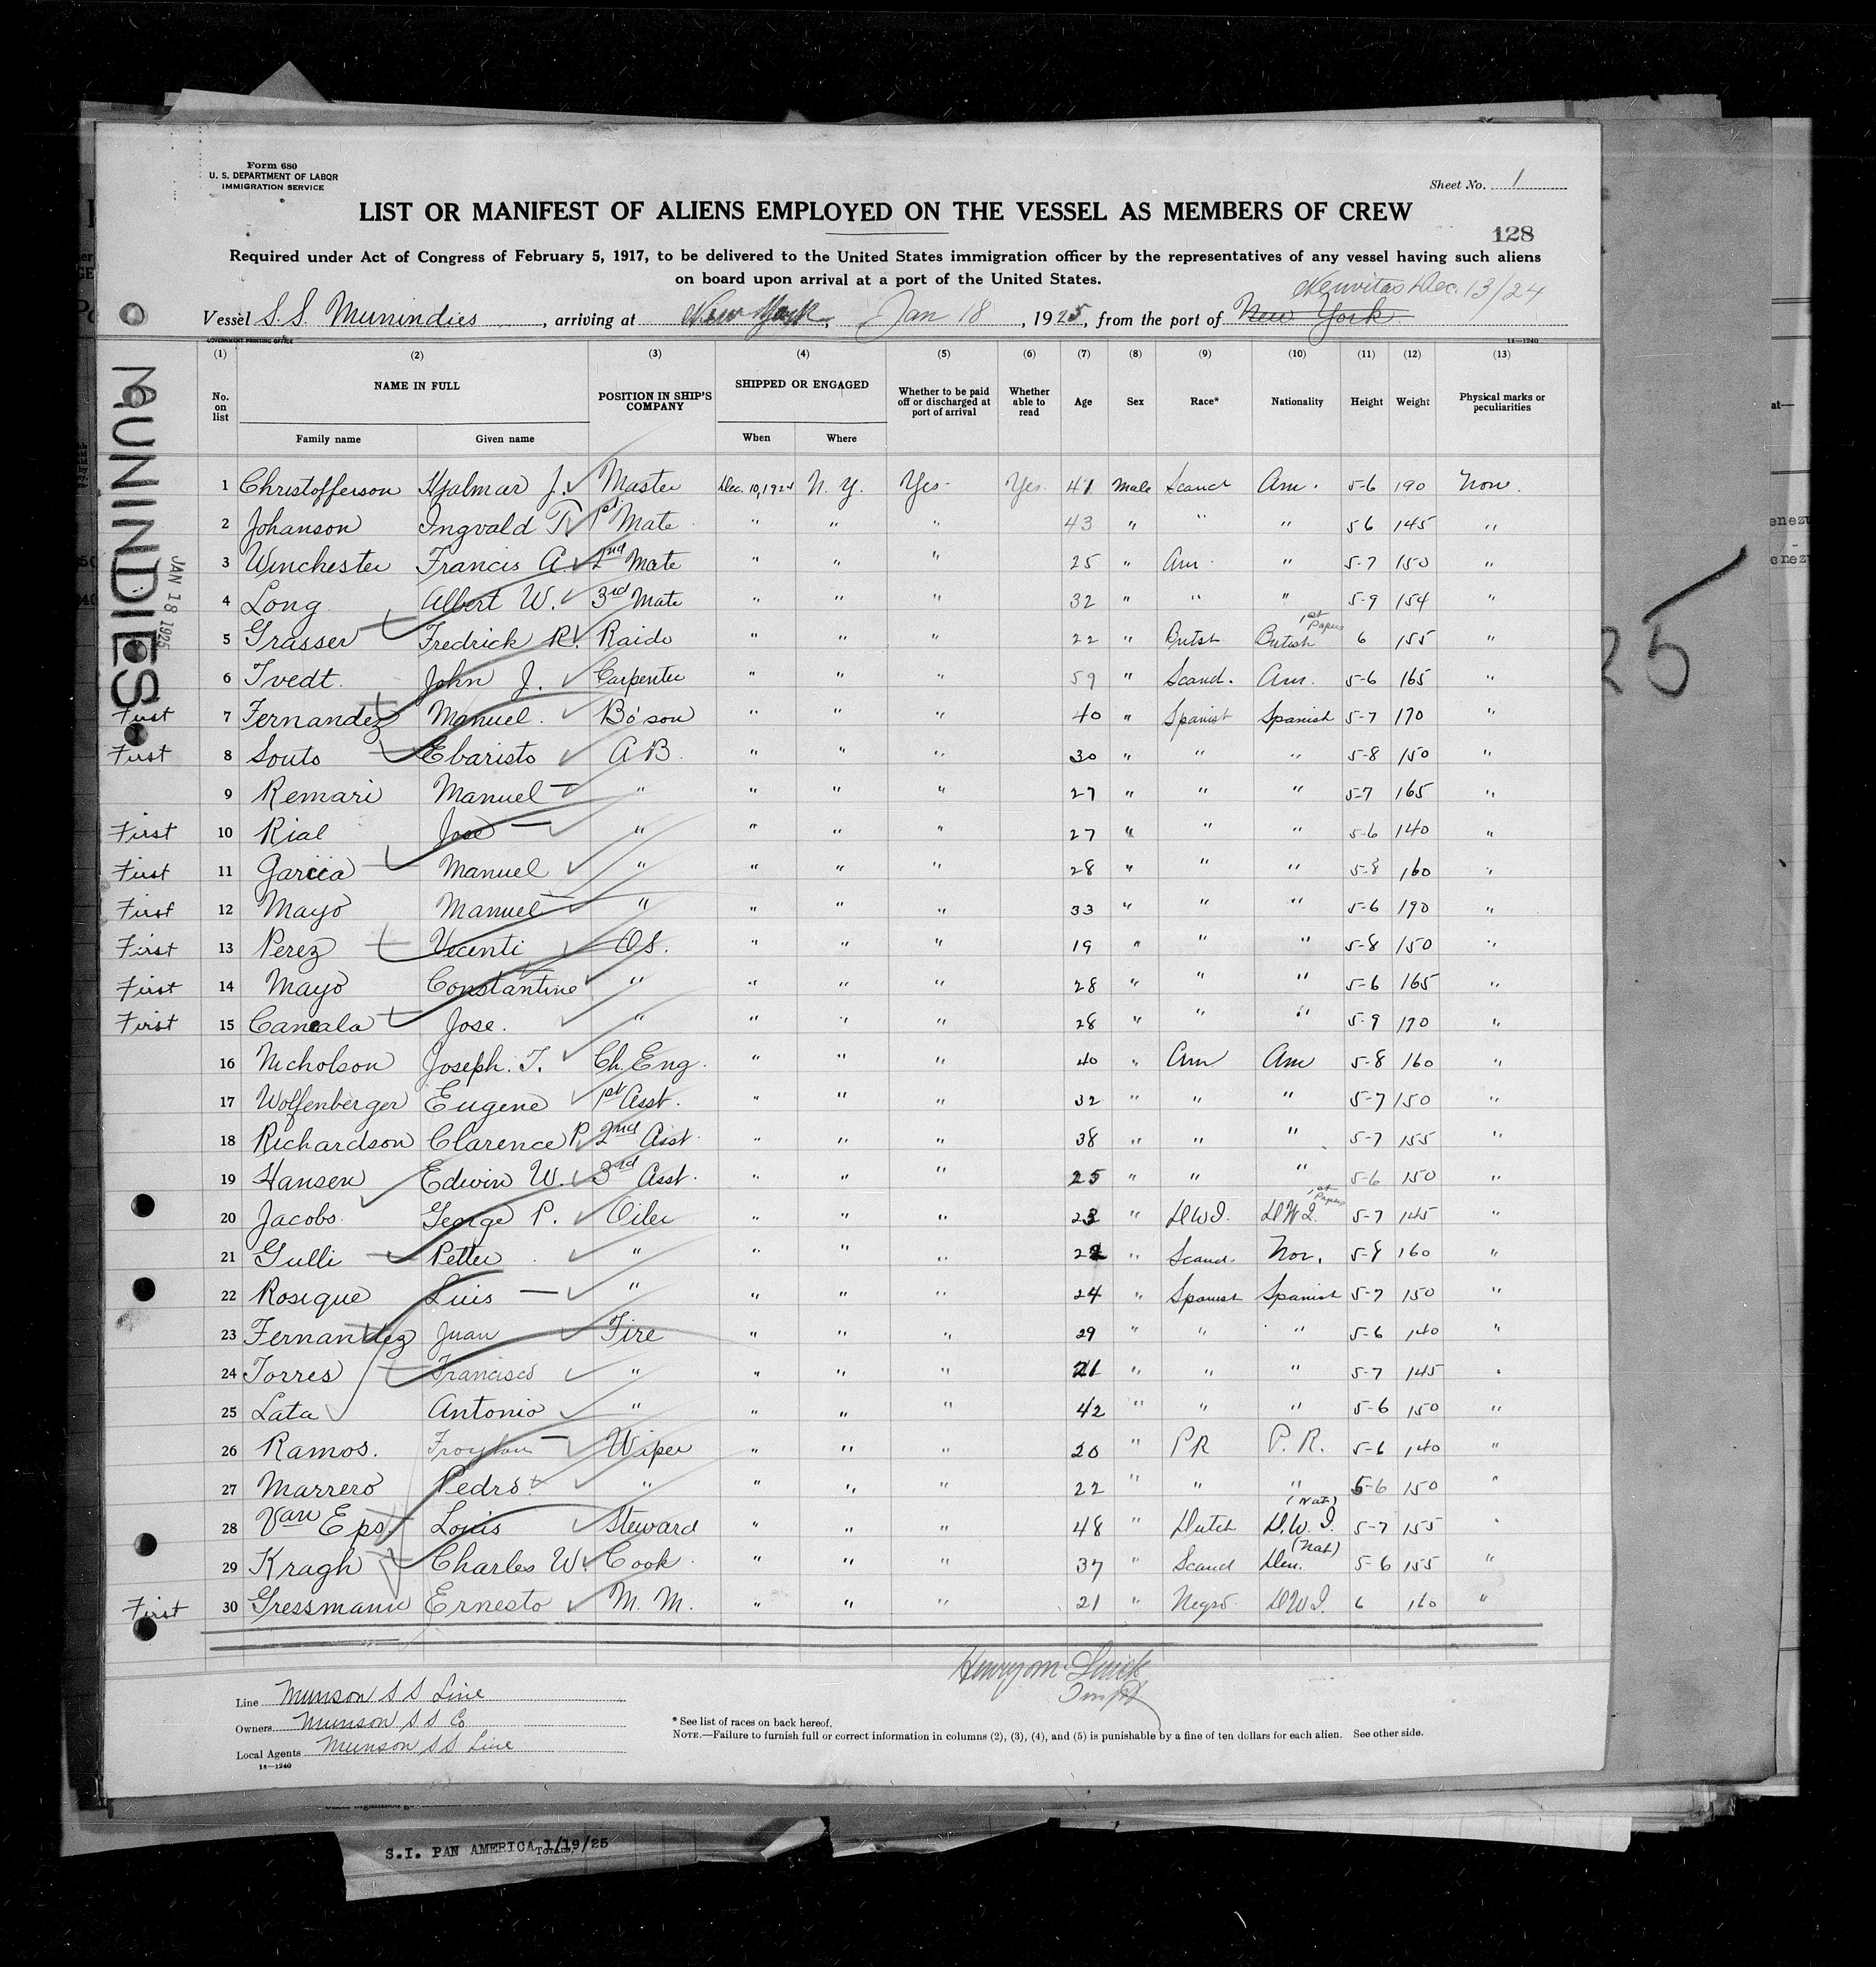 Form 680
U. S. DEPARTMENT OF LABOR
IMMIGRATION SERVICE
Sheet No. 1
LIST OR MANIFEST OF ALIENS EMPLOYED ON THE VESSEL AS MEMBERS OF CREW
128
Required under Act of Congress of February 5, 1917, to be delivered to the United States immigration officer by the representatives of any vessel having such aliens
on board upon arrival at a port of the United States.
Dec. 13/24
Vessel S.S. Munindies, arriving at New York, Jan 18, 1925, from the port of New York
GOVERNMENT PRINTING OFFICE
14—1240
(1) (2) (3) (4) (5) (6) (7) (8) (9) (10) (11) (12) (13)
No. on list NAME IN FULL POSITION IN SHIP'S COMPANY SHIPPED OR ENGAGED Whether to be paid off or discharged at port of arrival Whether able to read Age Sex Race* Nationality Height Weight Physical marks or peculiarities
Family name Given name When Where
MUNINDIES
JAN 18 1925
1 Christofferson Hjalmar J. Master Dec. 10, 1924 N. Y. Yes Yes 41 Male Scand Am. 5-6 190 Non.
2 Johanson Ingvald T. 1st Mate " " " 43 " " " 5 6 145 "
3 Winchester Francis A. 2nd Mate " " " 25 " Am. " 5-7 150 "
4 Long Albert W. 3rd Mate " " " 32 " " " 5-9 154 "
1st Papers
5 Grasser Fredrick R. Raido " " " 22 " British British 6 155 "
6 Tvedt. John J. Carpenter " " " 59 " Scand. Am. 5-6 165 "
First 7 Fernandez Manuel. Bo'son " " " 40 " Spanish Spanish 5-7 170 "
First 8 Souto Ebaristo A B. " " " 30 " " " 5-8 150 "
9 Remari Manuel " " " " 27 " " " 5-7 165 "
First 10 Rial Jose " " " " 27 " " " 5-6 140 "
First 11 Garcia Manuel " " " " 28 " " " 5-8 160 "
First 12 Mayo Manuel " " " " 33 " " " 5-6 190 "
First 13 Perez Vecenti OS. " " " 19 " " " 5-8 150 "
First 14 Mayo Constantine " " " " 28 " " " 5-6 165 "
First 15 Caneala Jose. " " " " 28 " " " 5-9 170 "
16 Nicholson Joseph. T. Ch. Eng. " " " 40 " Am Am 5-8 160 "
17 Wolfenberger Eugene 1st Asst. " " " 32 " " " 5-7 150 "
18 Richardson Clarence P. 2nd Asst. " " " 38 " " " 5-7 155 "
19 Hansen Edwin W. 3rd Asst. " " " 25 " " " 5-6 150 "
1st Papers
20 Jacobs. George P. Oiler " " " 23 " DWI. DWI. 5-7 145 "
21 Gulli Petter " " " " 22 " Scand. Nor. 5-8 160 "
22 Rosique Luis " " " " 24 " Spanish Spanish 5-7 150 "
23 Fernandez Juan Fire " " " 29 " " " 5-6 140 "
24 Torres Francisco " " " " 21 " " " 5-7 145 "
25 Lata Antonio " " " " 42 " " " 5-6 150 "
26 Ramos. Wiper " " " 20 " PR P. R. 5-6 140 "
27 Marrero Pedro. " " " " 22 " " " 5-6 150 "
(Nat)
28 Van Eps Louis Steward " " " 48 " Dutch D.W.I. 5-7 155 "
(Nat)
29 Kragh Charles W. Cook " " " 37 " Scand Den. 5-6 155 "
First 30 Gressmann Ernesto M. M. " " " 21 " Negro. DWI. 6 160 "
Line Munson S S Line
Owners Munson S S Co
Local Agents Munson S S Line
14—1240
* See list of races on back hereof.
NOTE.—Failure to furnish full or correct information in columns (2), (3), (4), and (5) is punishable by a fine of ten dollars for each alien. See other side.
S.I. PAN AMERICA 1/19/25
25